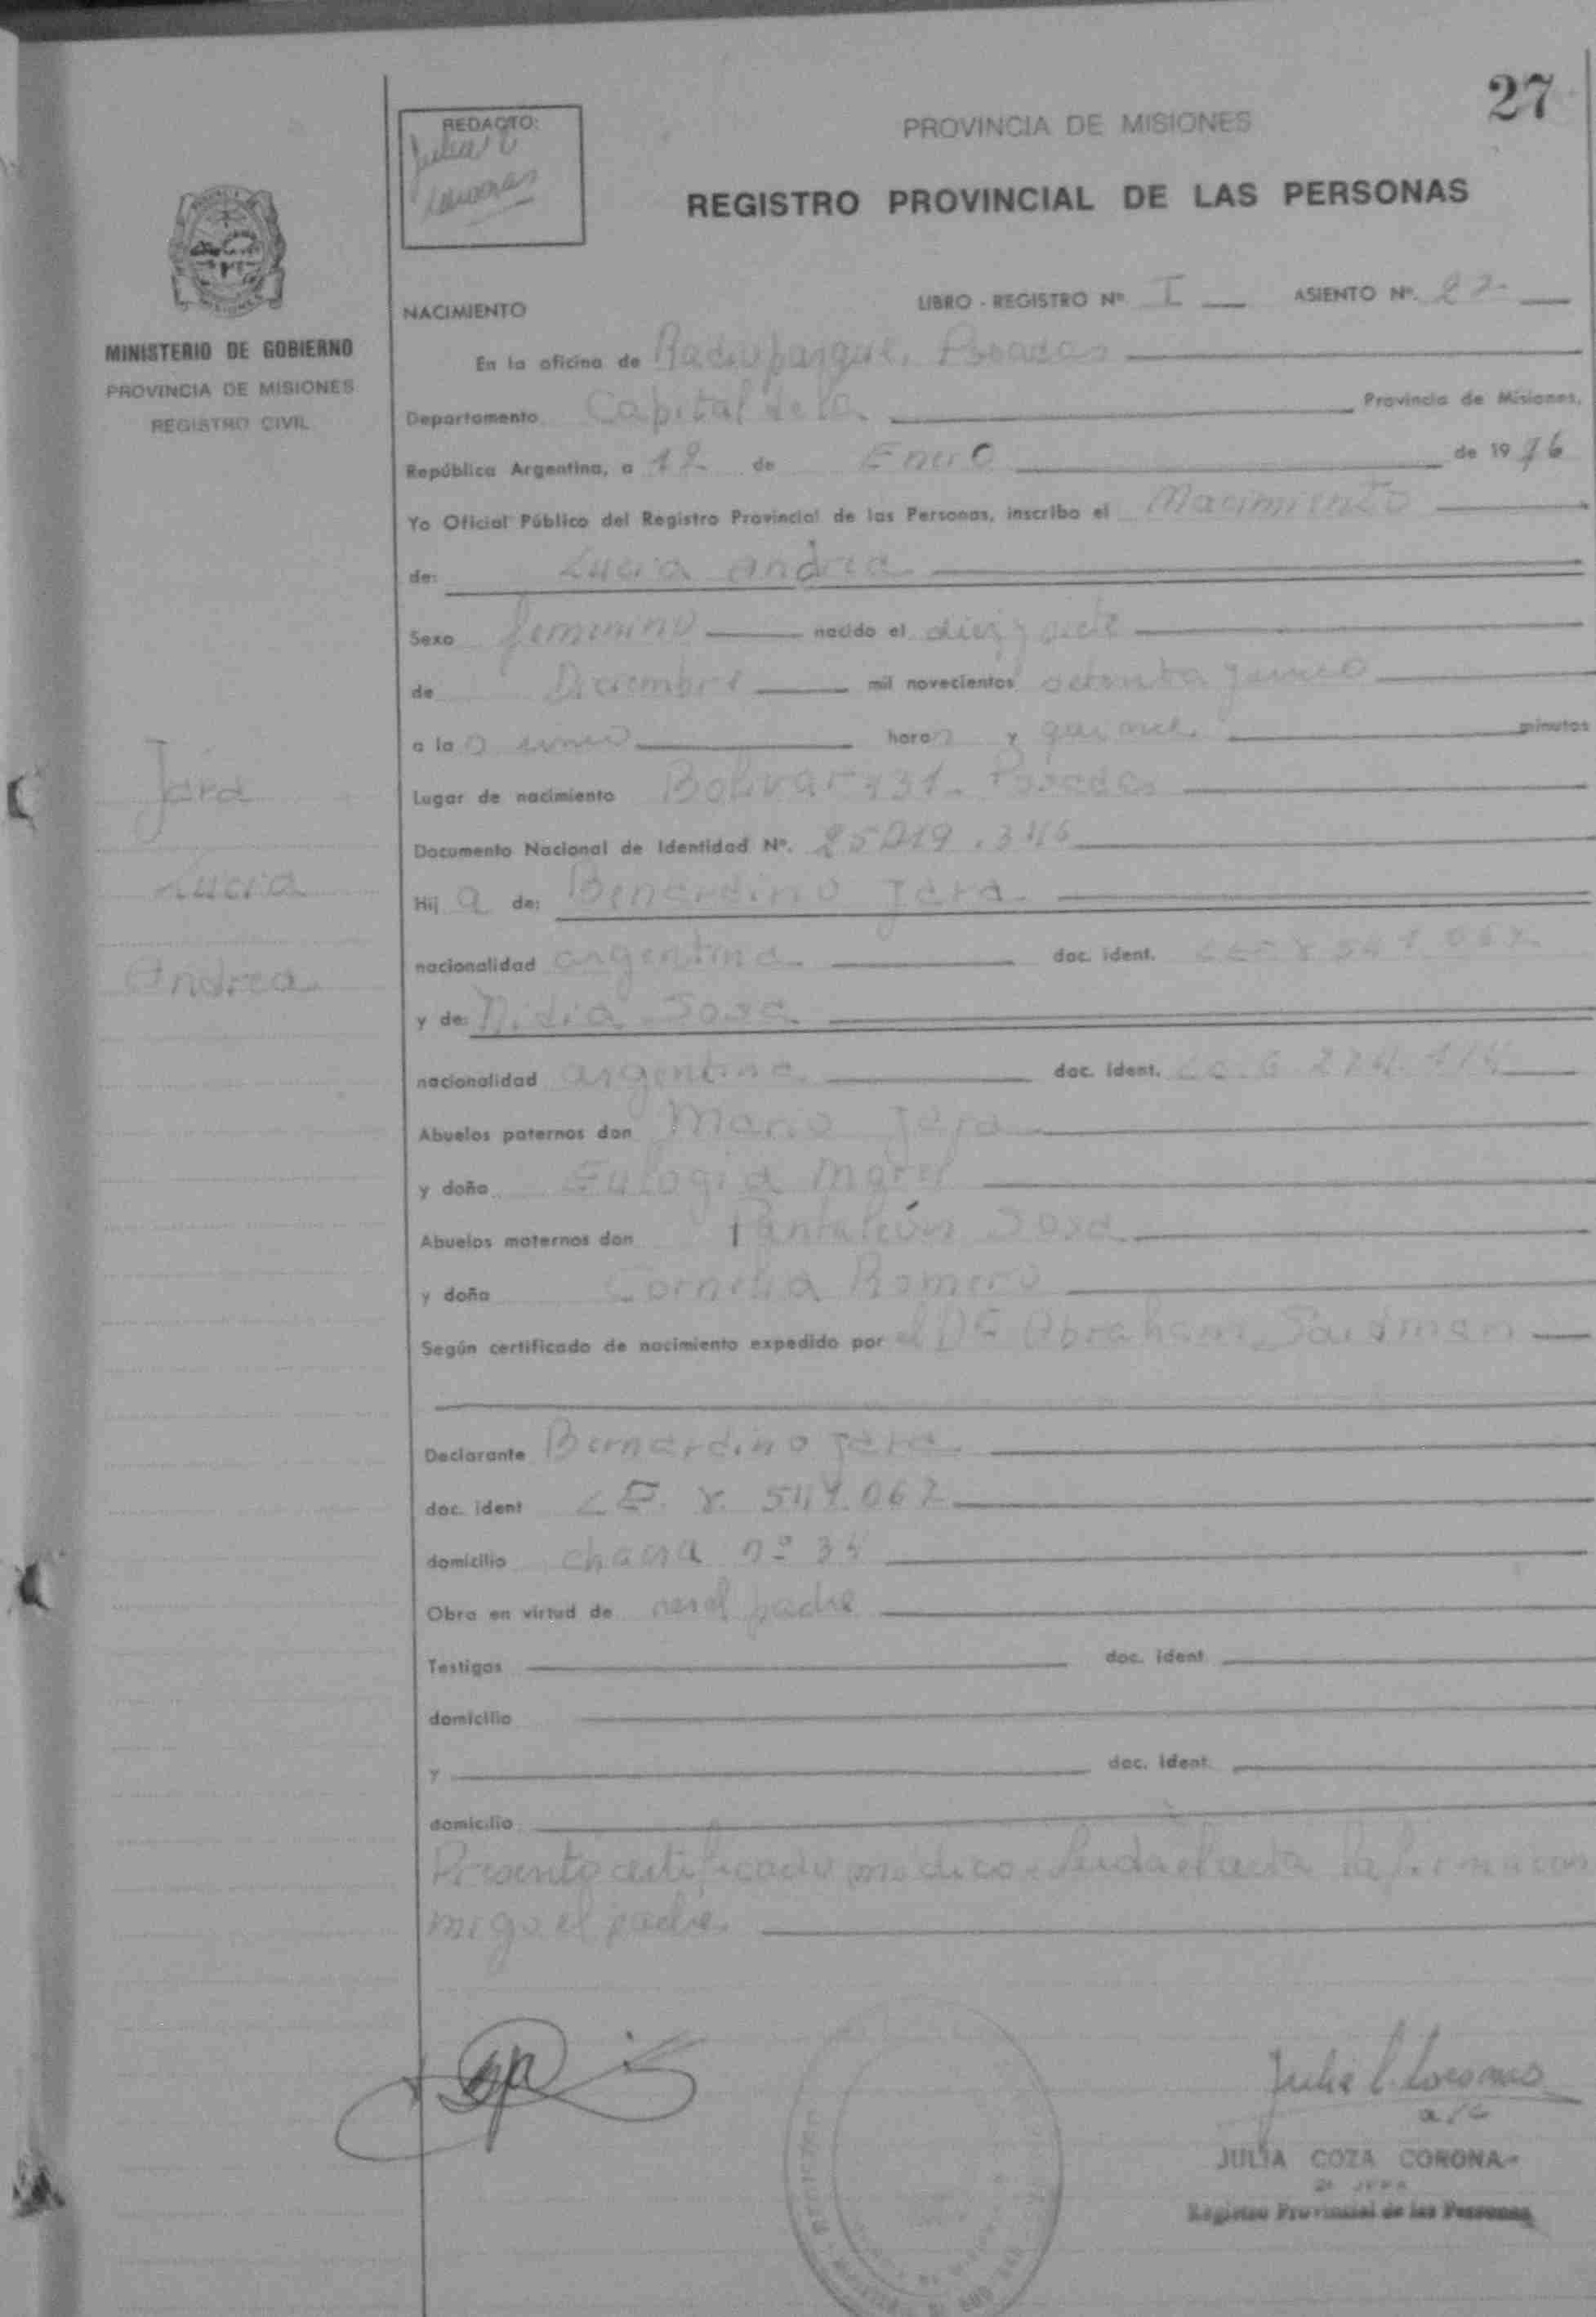 27
REDACTO:
PROVINCIA DE MISIONES
REGISTRO PROVINCIAL DE LAS PERSONAS
MINISTERIO DE GOBIERNO
PROVINCIA DE MISIONES
REGISTRO CIVIL
NACIMIENTO
LIBRO - REGISTRO Nº I ASIENTO Nº. 27
En la oficina de Radioparque. Posadas
Departamento Capital de la Provincia de Misiones,
República Argentina, a 12 de Enero de 1976
Yo Oficial Público del Registro Provincial de las Personas, inscribo el Nacimiento
de: Lucia Andrea
Sexo femenino nacido el diez y siete
de Diciembre mil novecientos setenta y cinco
a las una horas y quince minutos
Jara
Lucia
Andrea
Lugar de nacimiento Bolivar Posadas
Documento Nacional de Identidad Nº. 25.019.346
Hija de: Benardino Jara
nacionalidad argentina doc. ident.
y de: Nidia Sosa
nacionalidad argentina doc. ident.
Abuelos paternos don Mario Jara
y doña Eulogia Morel
Abuelos maternos don Pantaleón Sosa
y doña Cornelia Romero
Según certificado de nacimiento expedido por el Dr Abraham
Declarante Bernardino Jara
doc. ident L.E.
domicilio chacra nº
Obra en virtud de ser el padre
Testigos doc. ident
domicilio
y doc. ident.
domicilio
Presentó certificado médico. Leida el acta la firma con
migo el padre.
JULIA COZA CORONA
Registro Provincial de las Personas